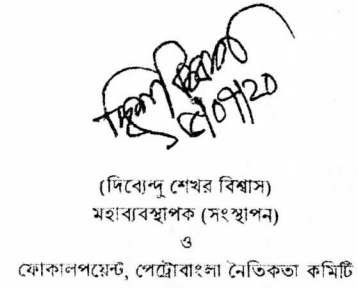 (দিব্যেন্দু শেখর বিশ্বাস)
মহাব্যবস্থাপক (সংস্থাপন)
ও
ফোকালপয়েন্ট, পেট্রোবাংলা নৈতিকতা কমিটি